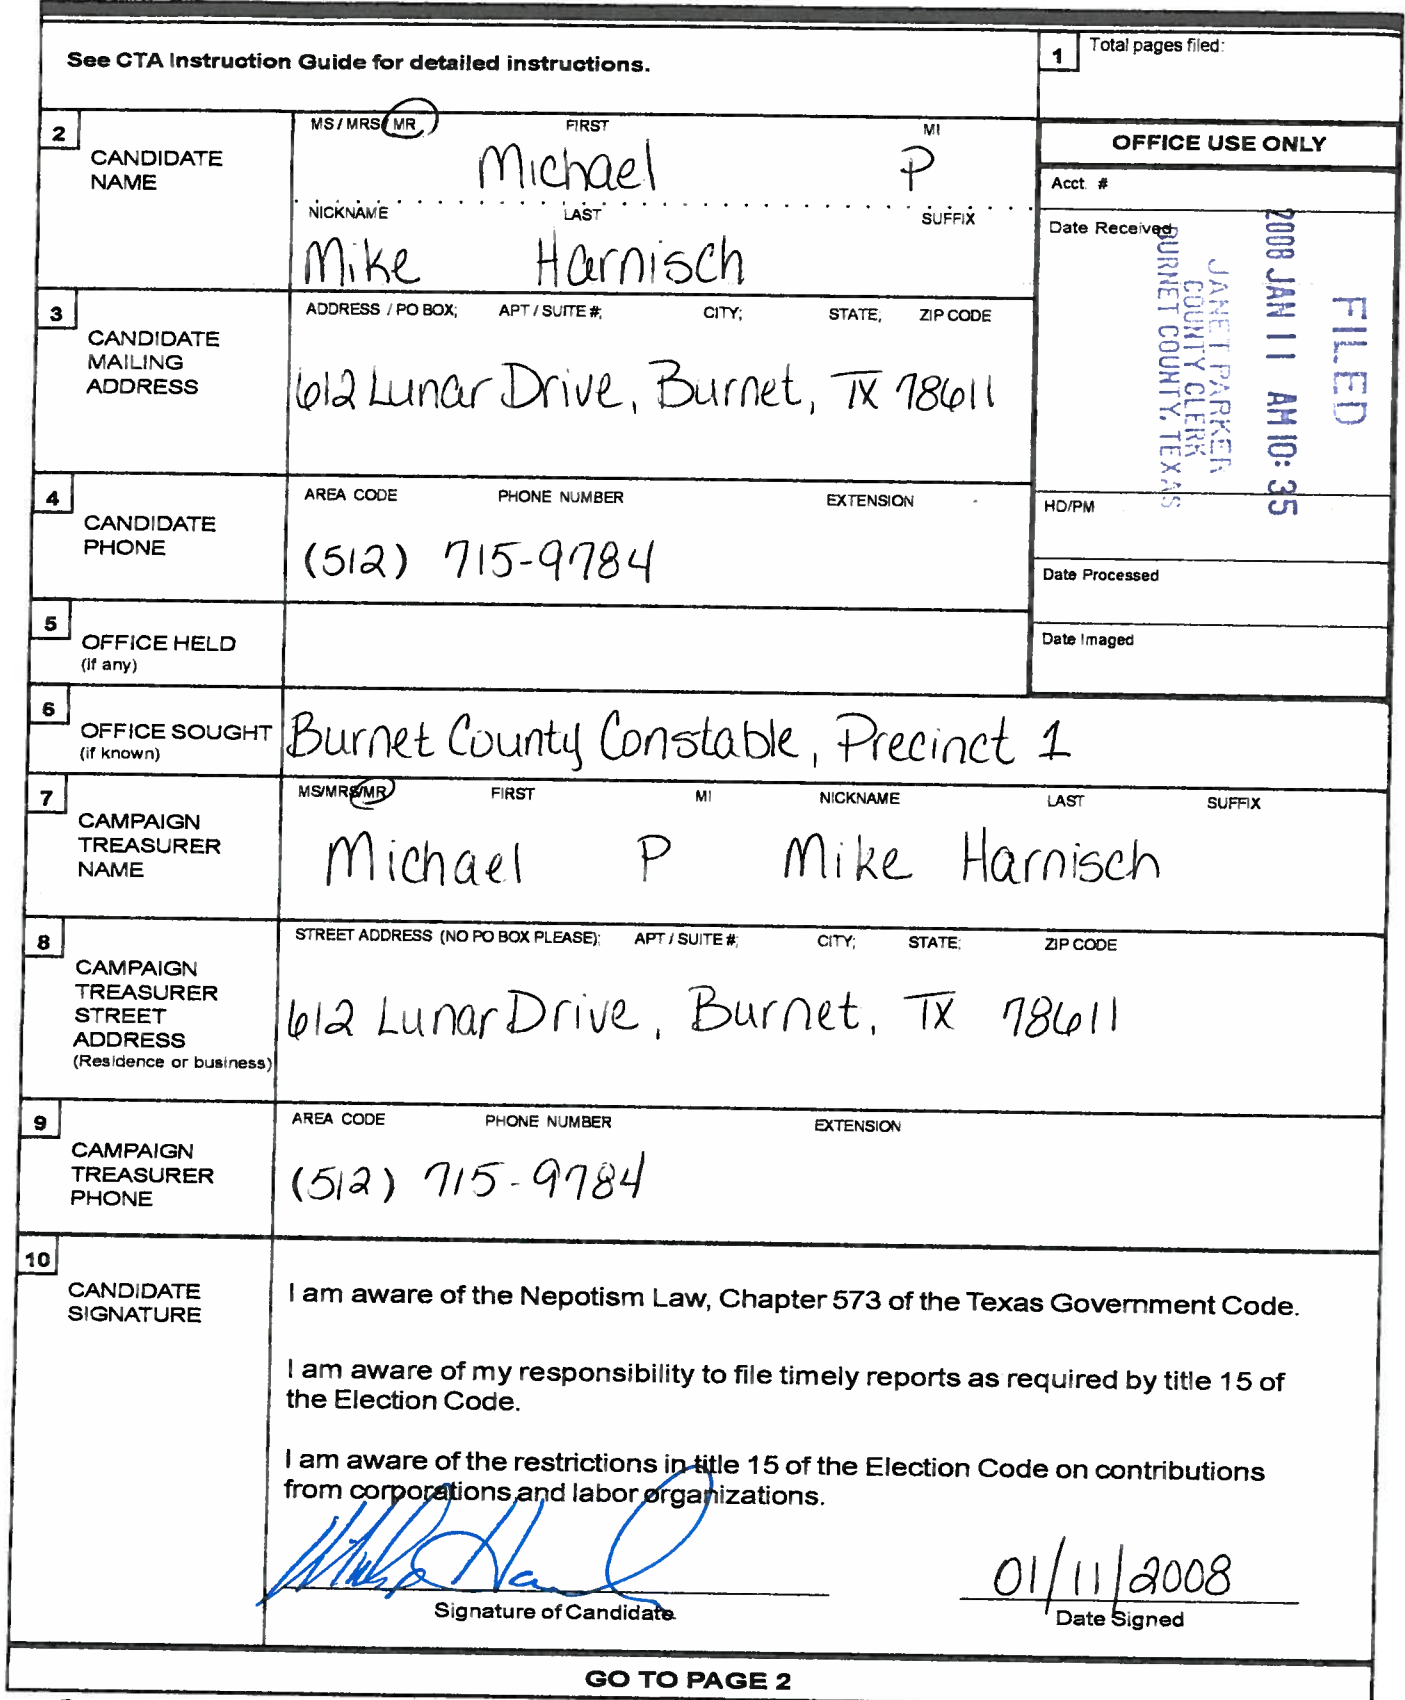 See CTA Instruction Guide for detailed instructions.
1 Total pages filed:
2 CANDIDATE NAME
MS / MRS / MR FIRST MI
Michael P
NICKNAME LAST SUFFIX
Mike Harnisch
OFFICE USE ONLY
Acct. #
Date Received
FILED
2008 JAN 11 AM 10: 35
JANET PARKER
COUNTY CLERK
BURNET COUNTY, TEXAS
HD/PM
Date Processed
Date Imaged
3 CANDIDATE MAILING ADDRESS
ADDRESS / PO BOX; APT / SUITE #; CITY; STATE; ZIP CODE
612 Lunar Drive, Burnet, TX 78611
4 CANDIDATE PHONE
AREA CODE PHONE NUMBER EXTENSION
(512) 715-9784
5 OFFICE HELD
(if any)
6 OFFICE SOUGHT
(if known)
Burnet County Constable, Precinct 1
7 CAMPAIGN TREASURER NAME
MS/MRS/MR FIRST MI NICKNAME LAST SUFFIX
Michael P Mike Harnisch
8 CAMPAIGN TREASURER STREET ADDRESS
(Residence or business)
STREET ADDRESS (NO PO BOX PLEASE); APT / SUITE #; CITY; STATE; ZIP CODE
612 Lunar Drive, Burnet, TX 78611
9 CAMPAIGN TREASURER PHONE
AREA CODE PHONE NUMBER EXTENSION
(512) 715-9784
10 CANDIDATE SIGNATURE
I am aware of the Nepotism Law, Chapter 573 of the Texas Government Code.
I am aware of my responsibility to file timely reports as required by title 15 of
the Election Code.
I am aware of the restrictions in title 15 of the Election Code on contributions
from corporations and labor organizations.
01/11/2008
Signature of Candidate
Date Signed
GO TO PAGE 2